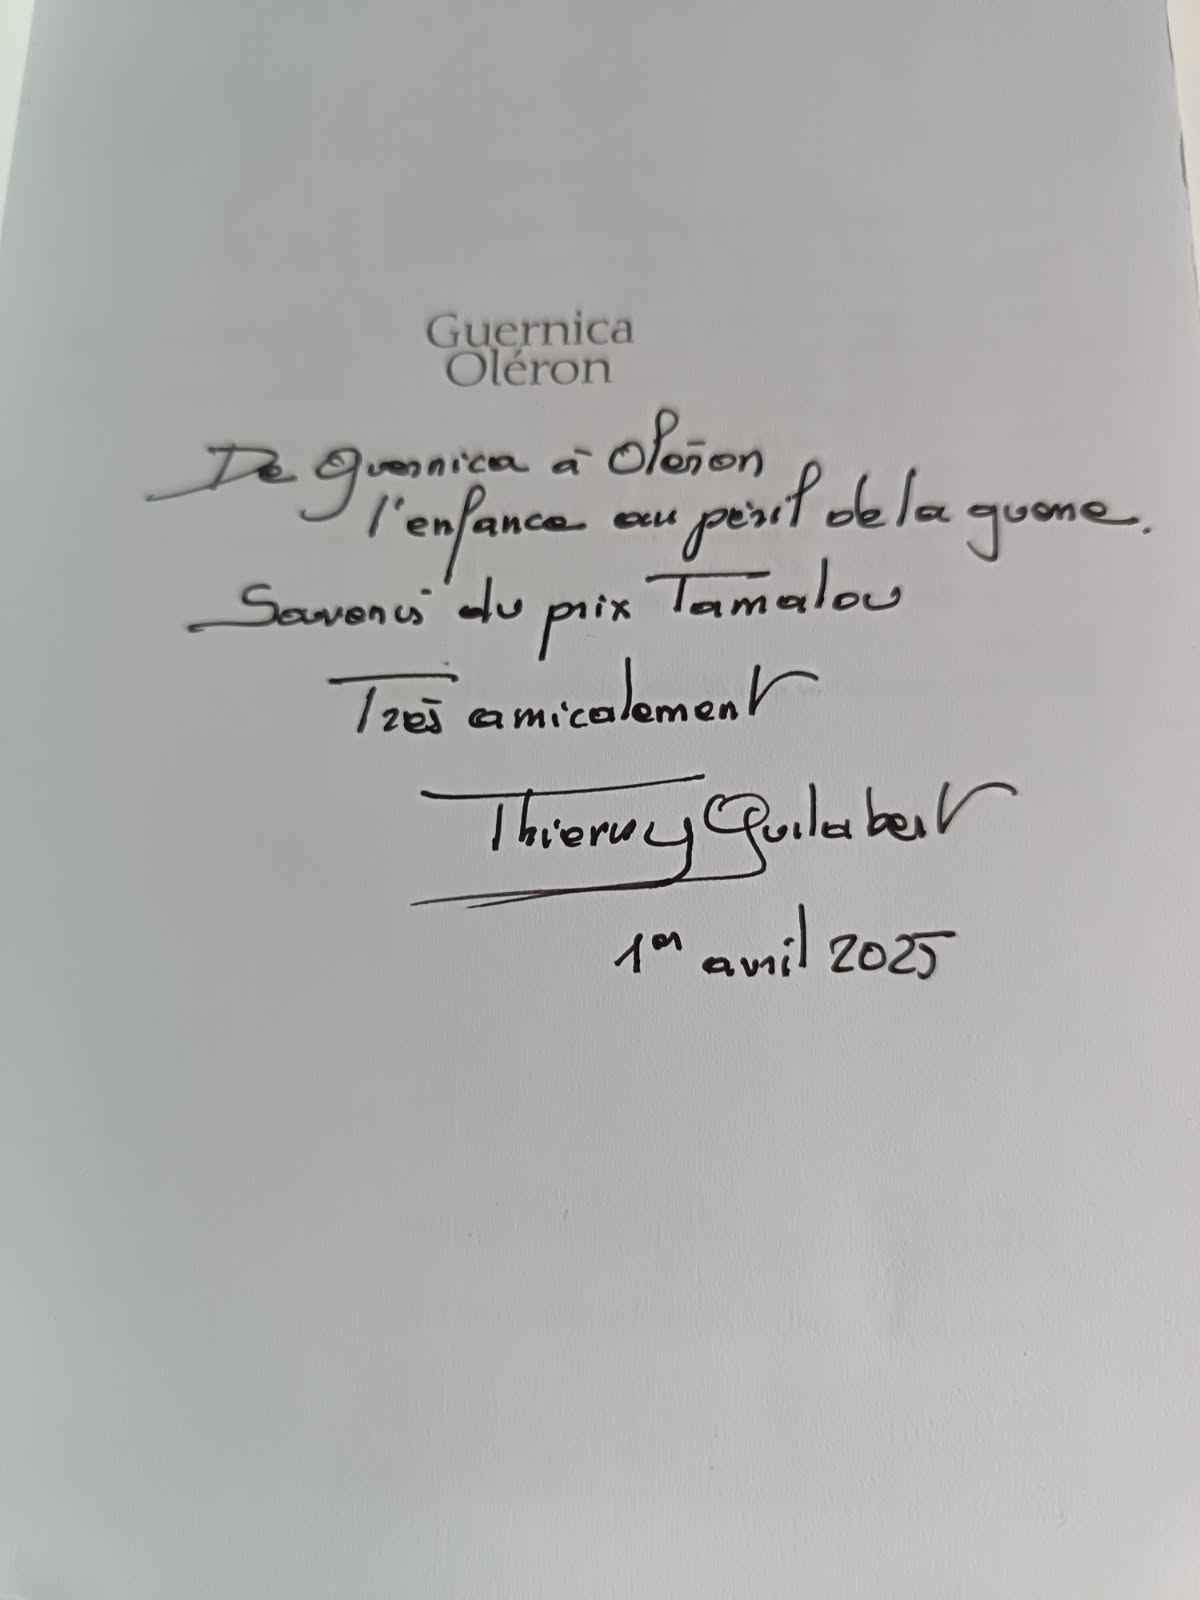 Guernica
Oléron
De Guernica à Oléron
l'enfance au péril de la guerre.
Souvenir du prix Tamalou
Très amicalement
Thierry Guilabert
1er avril 2025